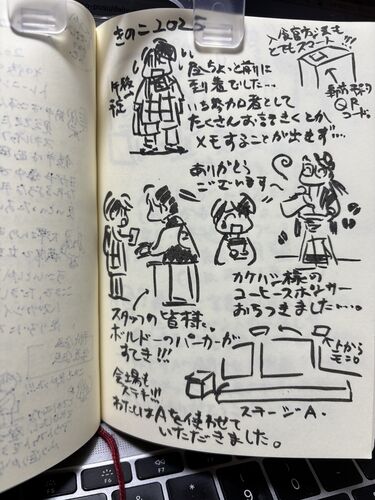 きのこ2025
午後
従
昼ちょっと前に
到着でした…
いち努力者として
たくさんお話きくとか
メモすることが出せず…
入会宣言も
とてもスマート!!!
事前予約
QR
コード。
ありがとう
ございます〜
スタッフの皆様。
ボルドーのパーカーが
すてき!!!
カケハシ様の
コーヒースポンサー
おちつきました…。
会場も
ステキ!!
わたしはAを使わせて
いただきました。
上から
モニタ
ステージA.